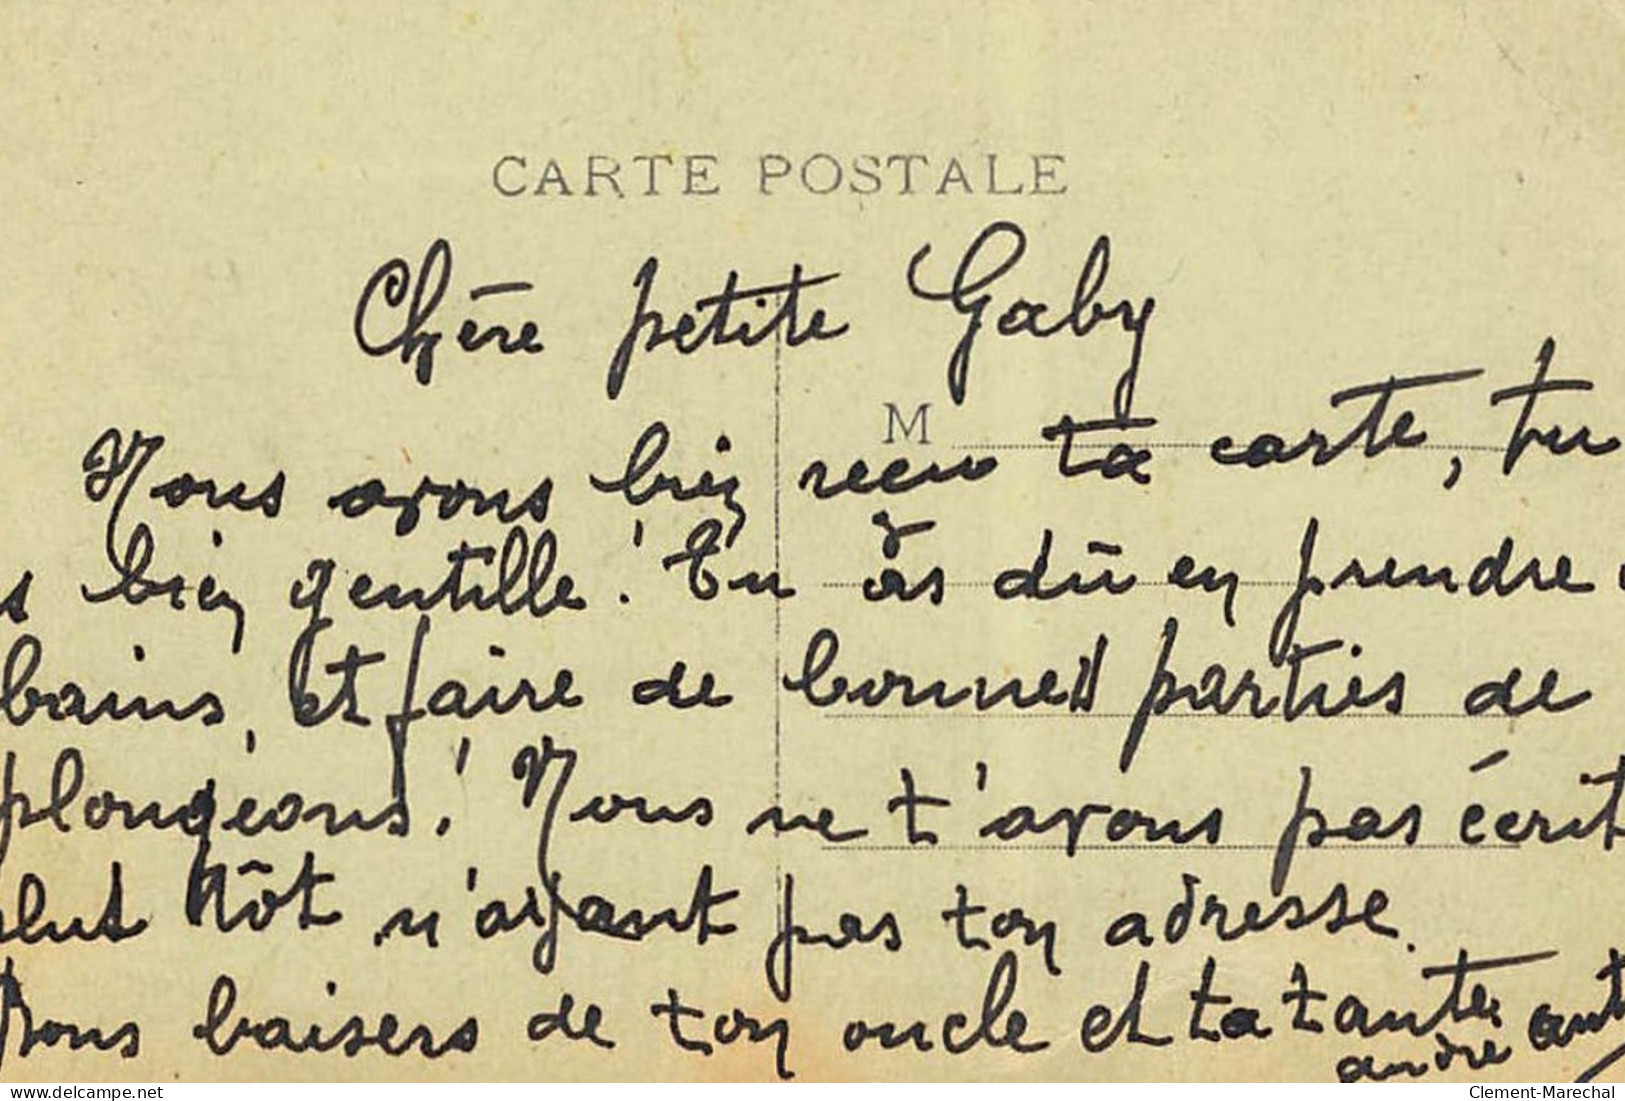 CARTE POSTALE
Chère petite Gaby
M
Nous avons bien reçu ta carte, tu
s bien gentille! Tu as dû en prendre
bains, et faire de bonnes parties de
plongeons! Nous ne t'avons pas écrit
plut tôt n'ayant pas ton adresse.
Bons baisers de ton oncle et ta tante
andré
Clement-Marechal